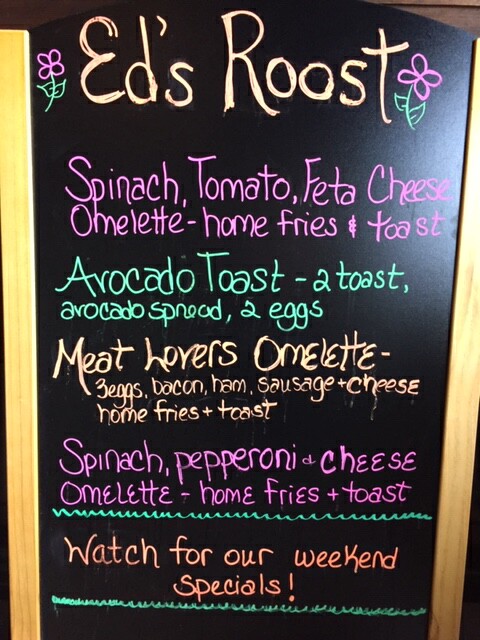 Ed's Roost
Spinach, Tomato, Feta Cheese
Omelette - home fries & toast
Avocado Toast - 2 toast,
avocado spread, 2 eggs
Meat Lovers Omelette -
3eggs, bacon, ham, sausage + cheese
home fries + toast
Spinach, pepperoni & cheese
Omelette - home fries + toast
Watch for our weekend
specials!